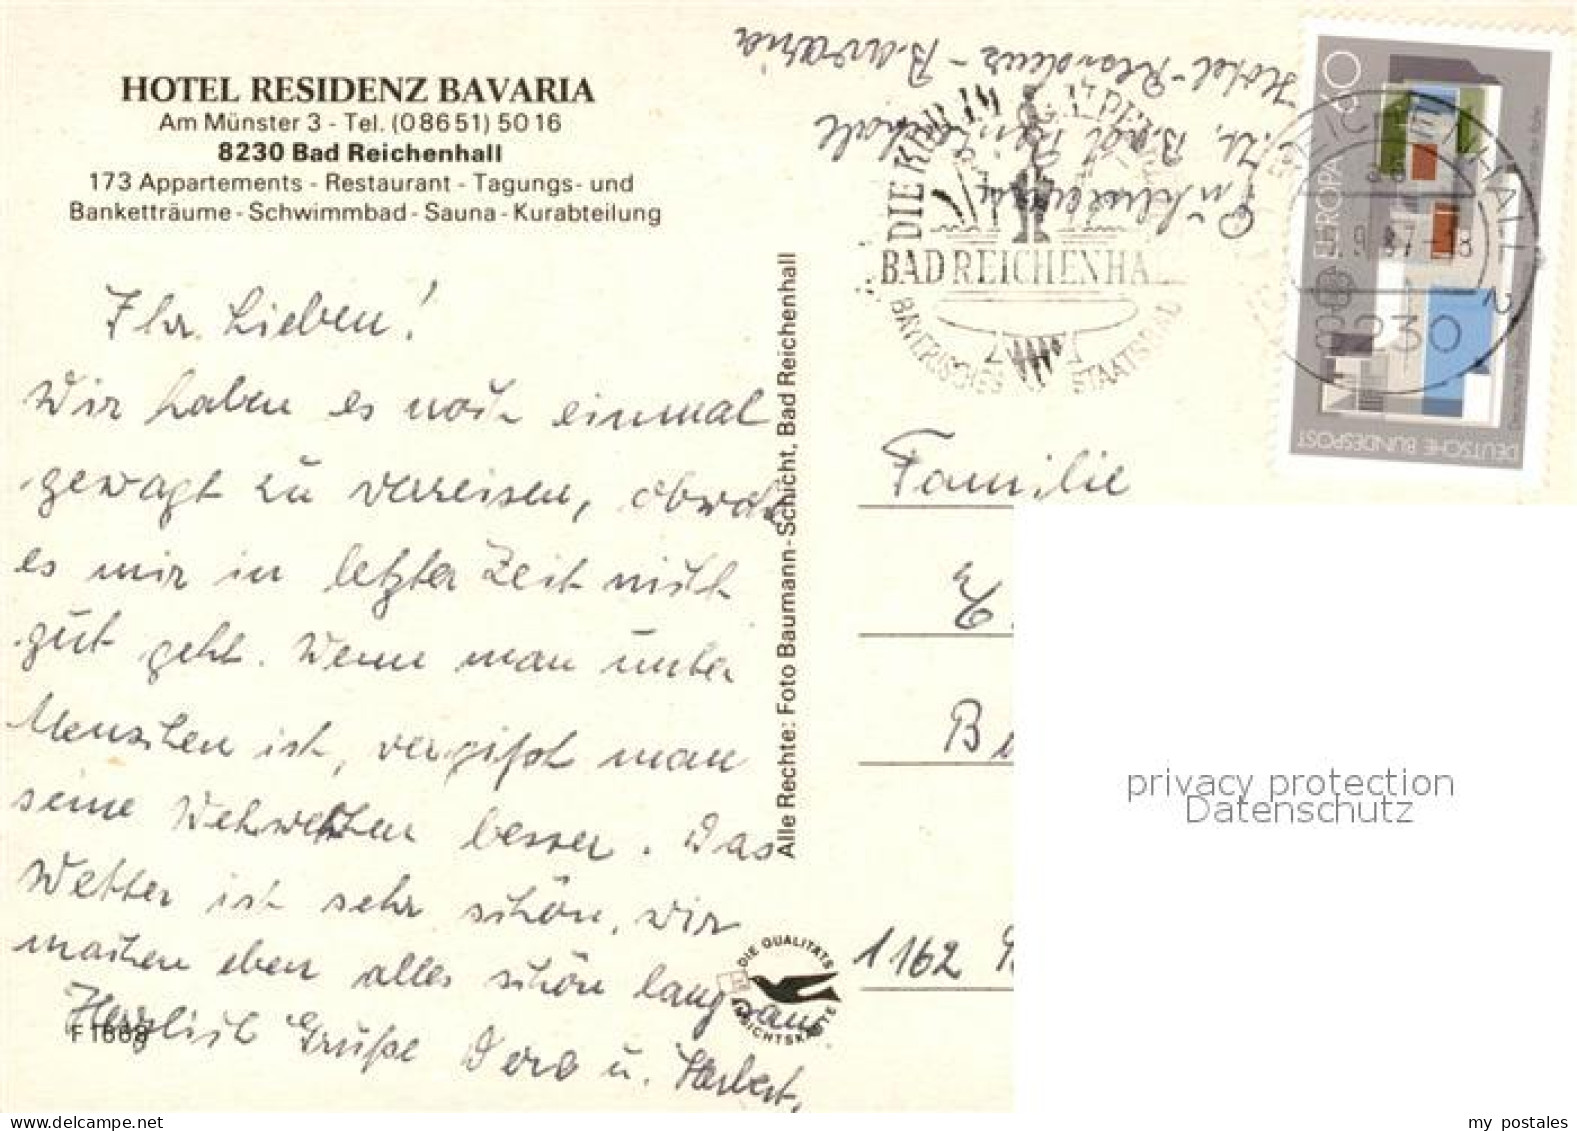 HOTEL RESIDENZ BAVARIA
Am Münster 3 - Tel. (08651) 5016
8230 Bad Reichenhall
173 Appartements - Restaurant - Tagungs- und
Banketträume - Schwimmbad - Sauna - Kurabteilung
Ihr Lieben!
Wir haben es noch einmal
gewagt zu verreisen, obwohl
es mir in letzter Zeit nicht
gut geht. Wenn man unter
Menschen ist, vergißt man
seine Wehwehchen besser. Das
Wetter ist sehr schön, wir
machen eben alles schön langsam
Herzlich Grüße Dora u. Herbert,
F 1668
Alle Rechte: Foto Baumann-Schicht, Bad Reichenhall
DIE QUALITÄTS
ANSICHTSKARTE
Hotel-Residenz-Bavaria
Zt. Bad Reichenhall
DIE KUR IN
BAD REICHENHA
BAYERISCHES STAATSBAD
BAD REICHENHALL 2
9.87-18
8230
60
EUROPA
DEUTSCHE BUNDESPOST
Familie
E.
B
1162
privacy protection
Datenschutz
my postales